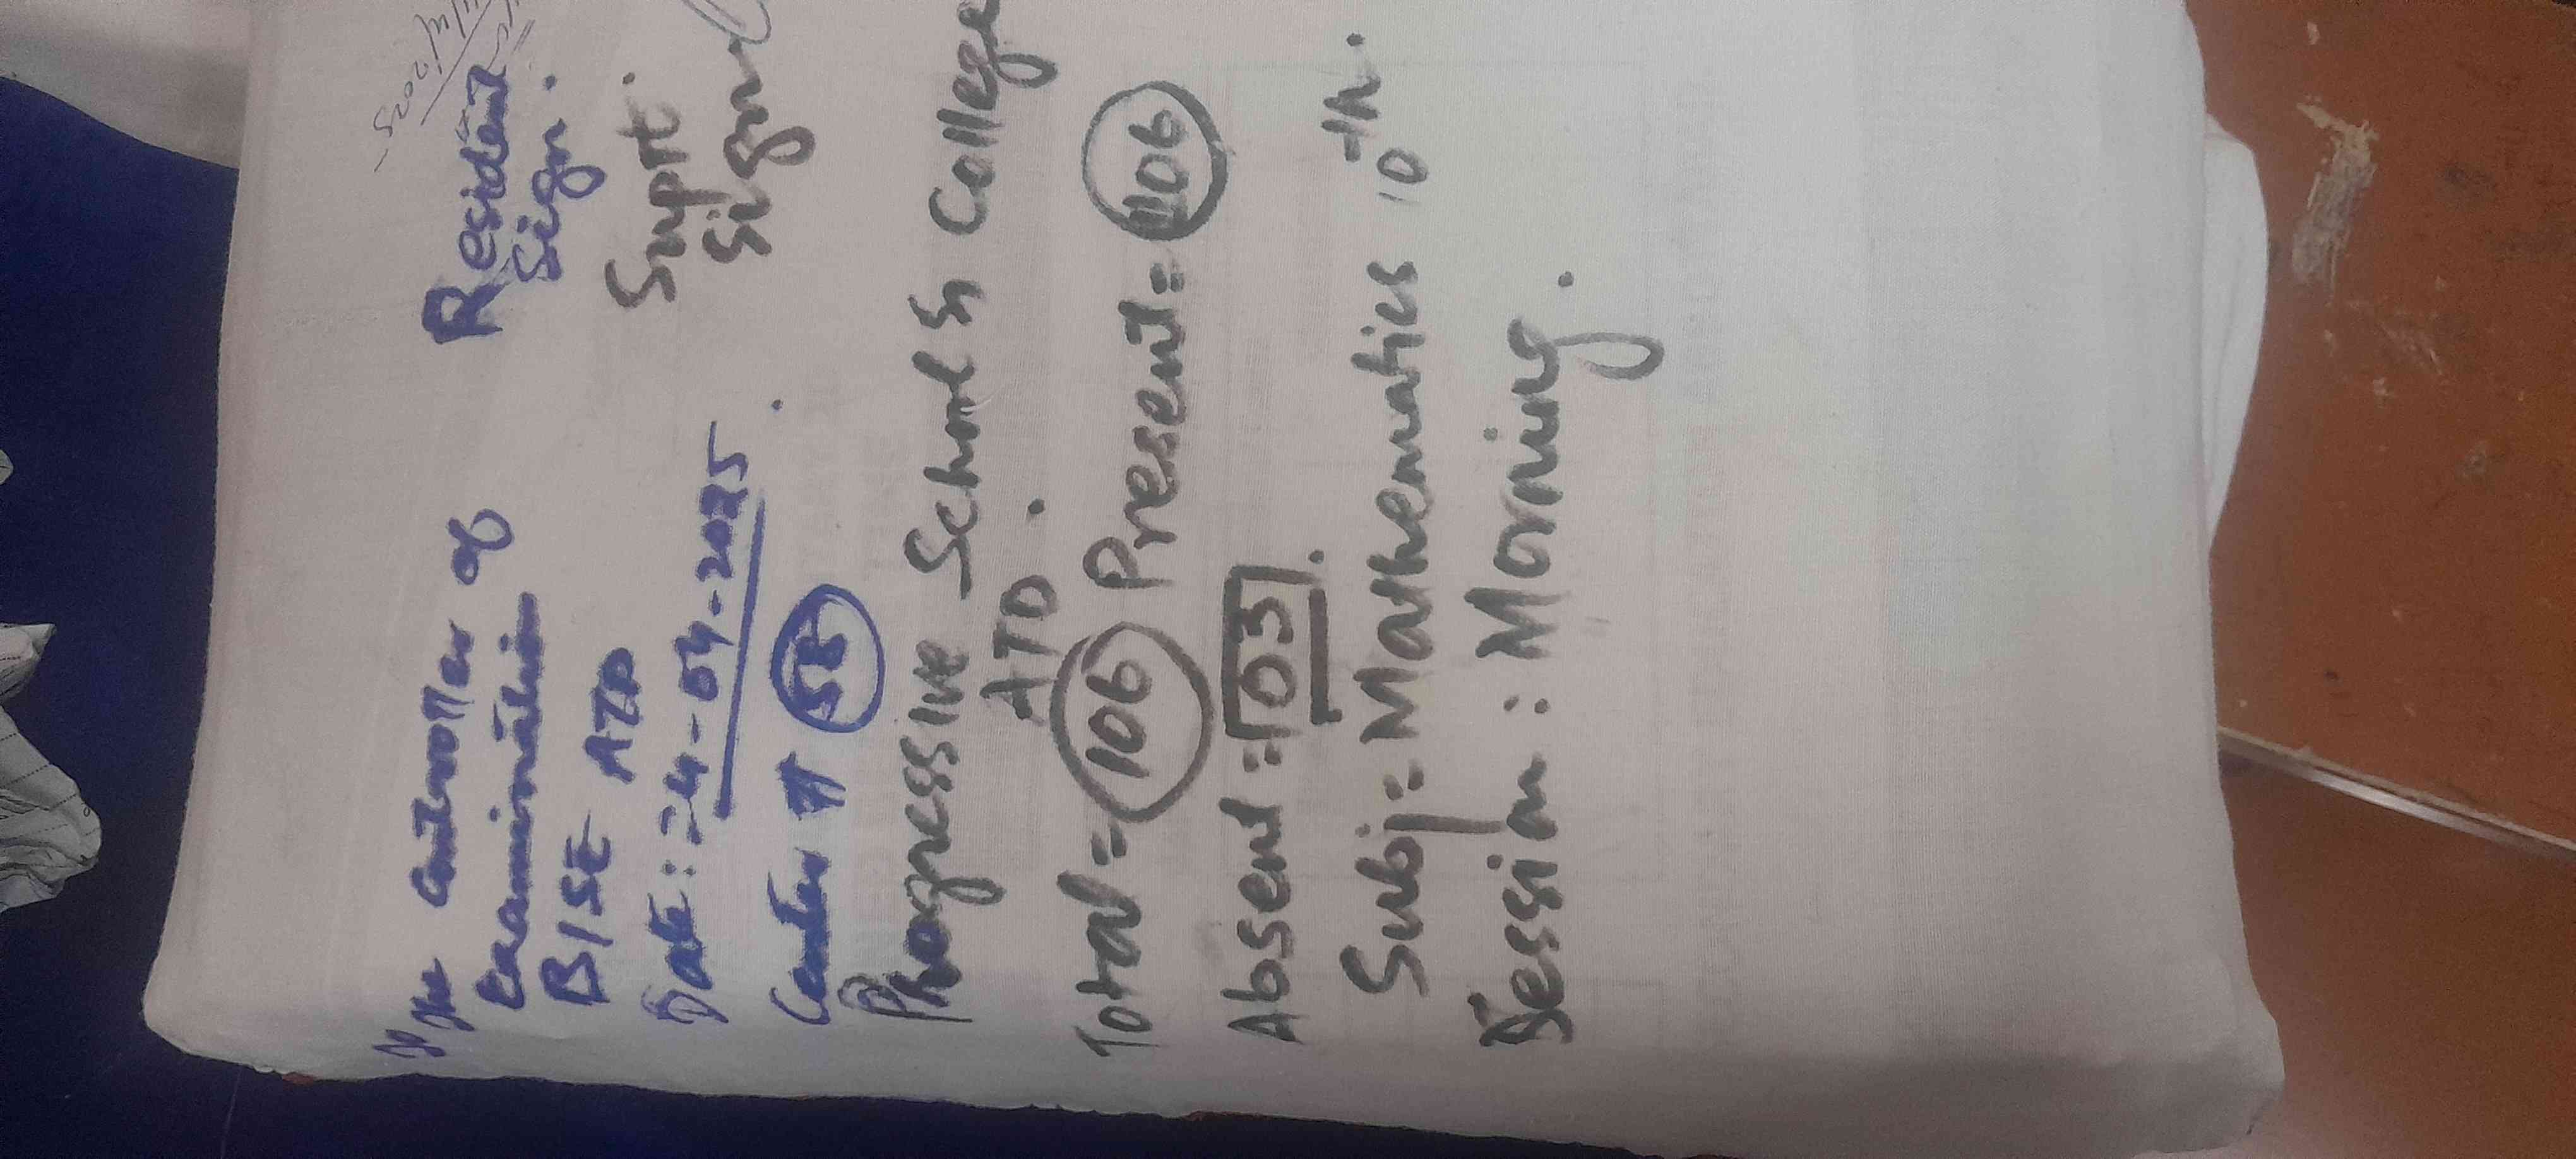 The Controller of
Examination
BISE ATD
Date: 24-04-2025
Center # 58
Progressive School & College
ATD.
Total = 106 Present = 106
Absent = 03.
Subj = Mathematics 10th.
Session : Morning.
Resident
Sign.
Supt.
Sign